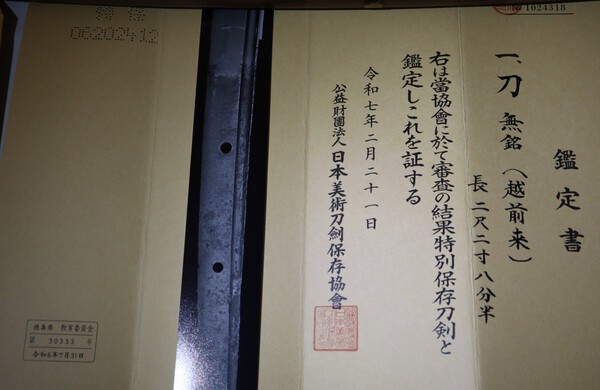 1024318
鑑定書
一、刀 無銘(越前来)
長 二尺二寸八分半
右は當協會に於て審査の結果特別保存刀剣と
鑑定しこれを証する
令和七年二月二十一日
公益財團法人 日本美術刀劍保存協會
06202412
徳島県 教育委員会
第 30333 号
令和6年7月31日